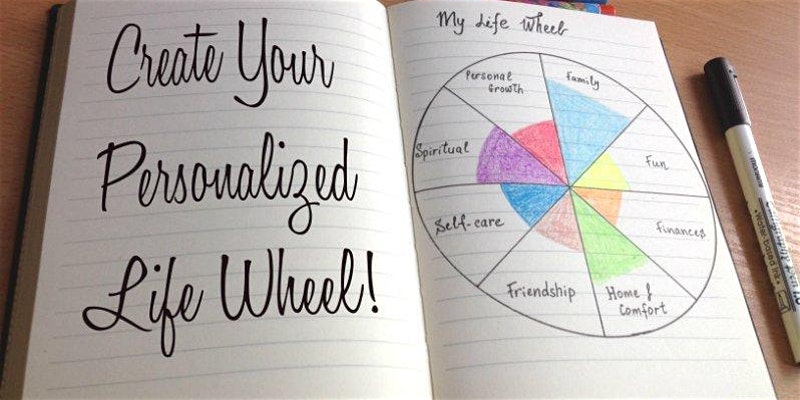 Create Your
Personalized
Life Wheel!
My Life Wheel
Personal
Growth
Family
Fun
Finances
Home &
Comfort
Friendship
Self-care
Spiritual